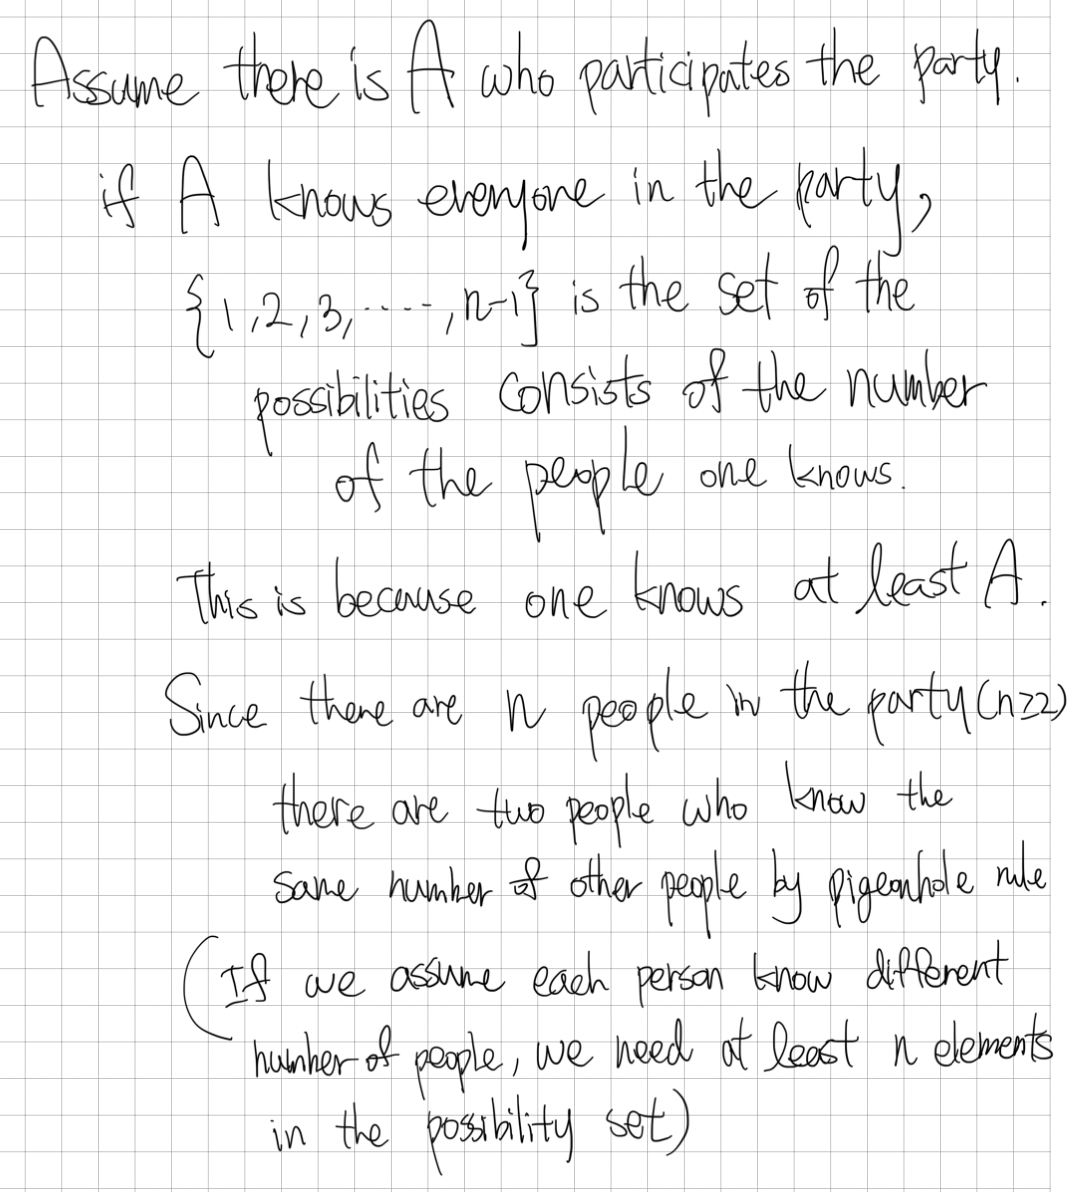 Assume there is A who participates the party.
if A knows everyone in the party,
{1,2,3,‧‧‧‧,n-1} is the set of the
possibilities consists of the number
of the people one knows.
This is because one knows at least A.
Since there are n people in the party (n≥2)
there are two people who know the
same number of other people by pigeonhole rule
(If we assume each person know different
number of people, we need at least n elements
in the possibility set)